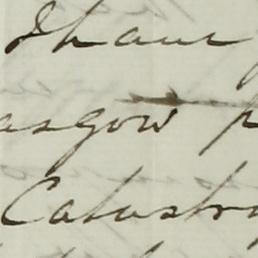 I have
asgow p
Catastro